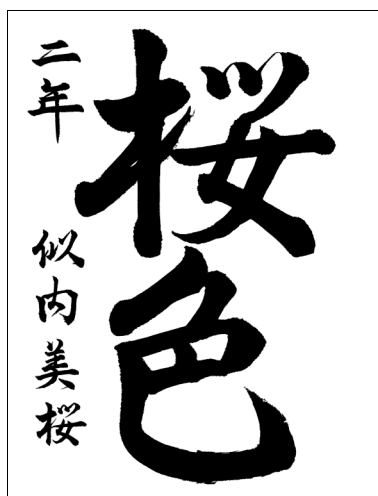 桜色
二年 似内美桜